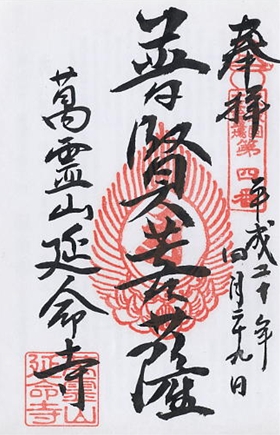 奉拝
第四番
平成二十年
四月二十九日
普賢菩薩
萬霊山延命寺
萬霊山
延命寺